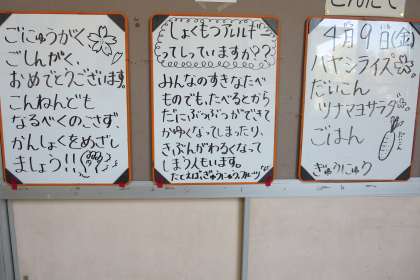 ごにゅうがく
ごしんがく、
おめでとうございます。
こんねんども
なるべくのこさず、
かんしょくをめざし
ましょう!!
しょくもつアレルギー
ってしっていますか??
みんなのすきなたべ
ものでも、たべるとから
だにぶつぶつができて
かゆくなってしまったり、
きぶんがわるくなって
しまう人もいます。
たとえば、ぎゅうにゅう、フルーツ
こんだて
4月9日(金)
ハヤシライス
だいこん
ツナマヨサラダ
ごはん
ぎゅうにゅう
だいこん